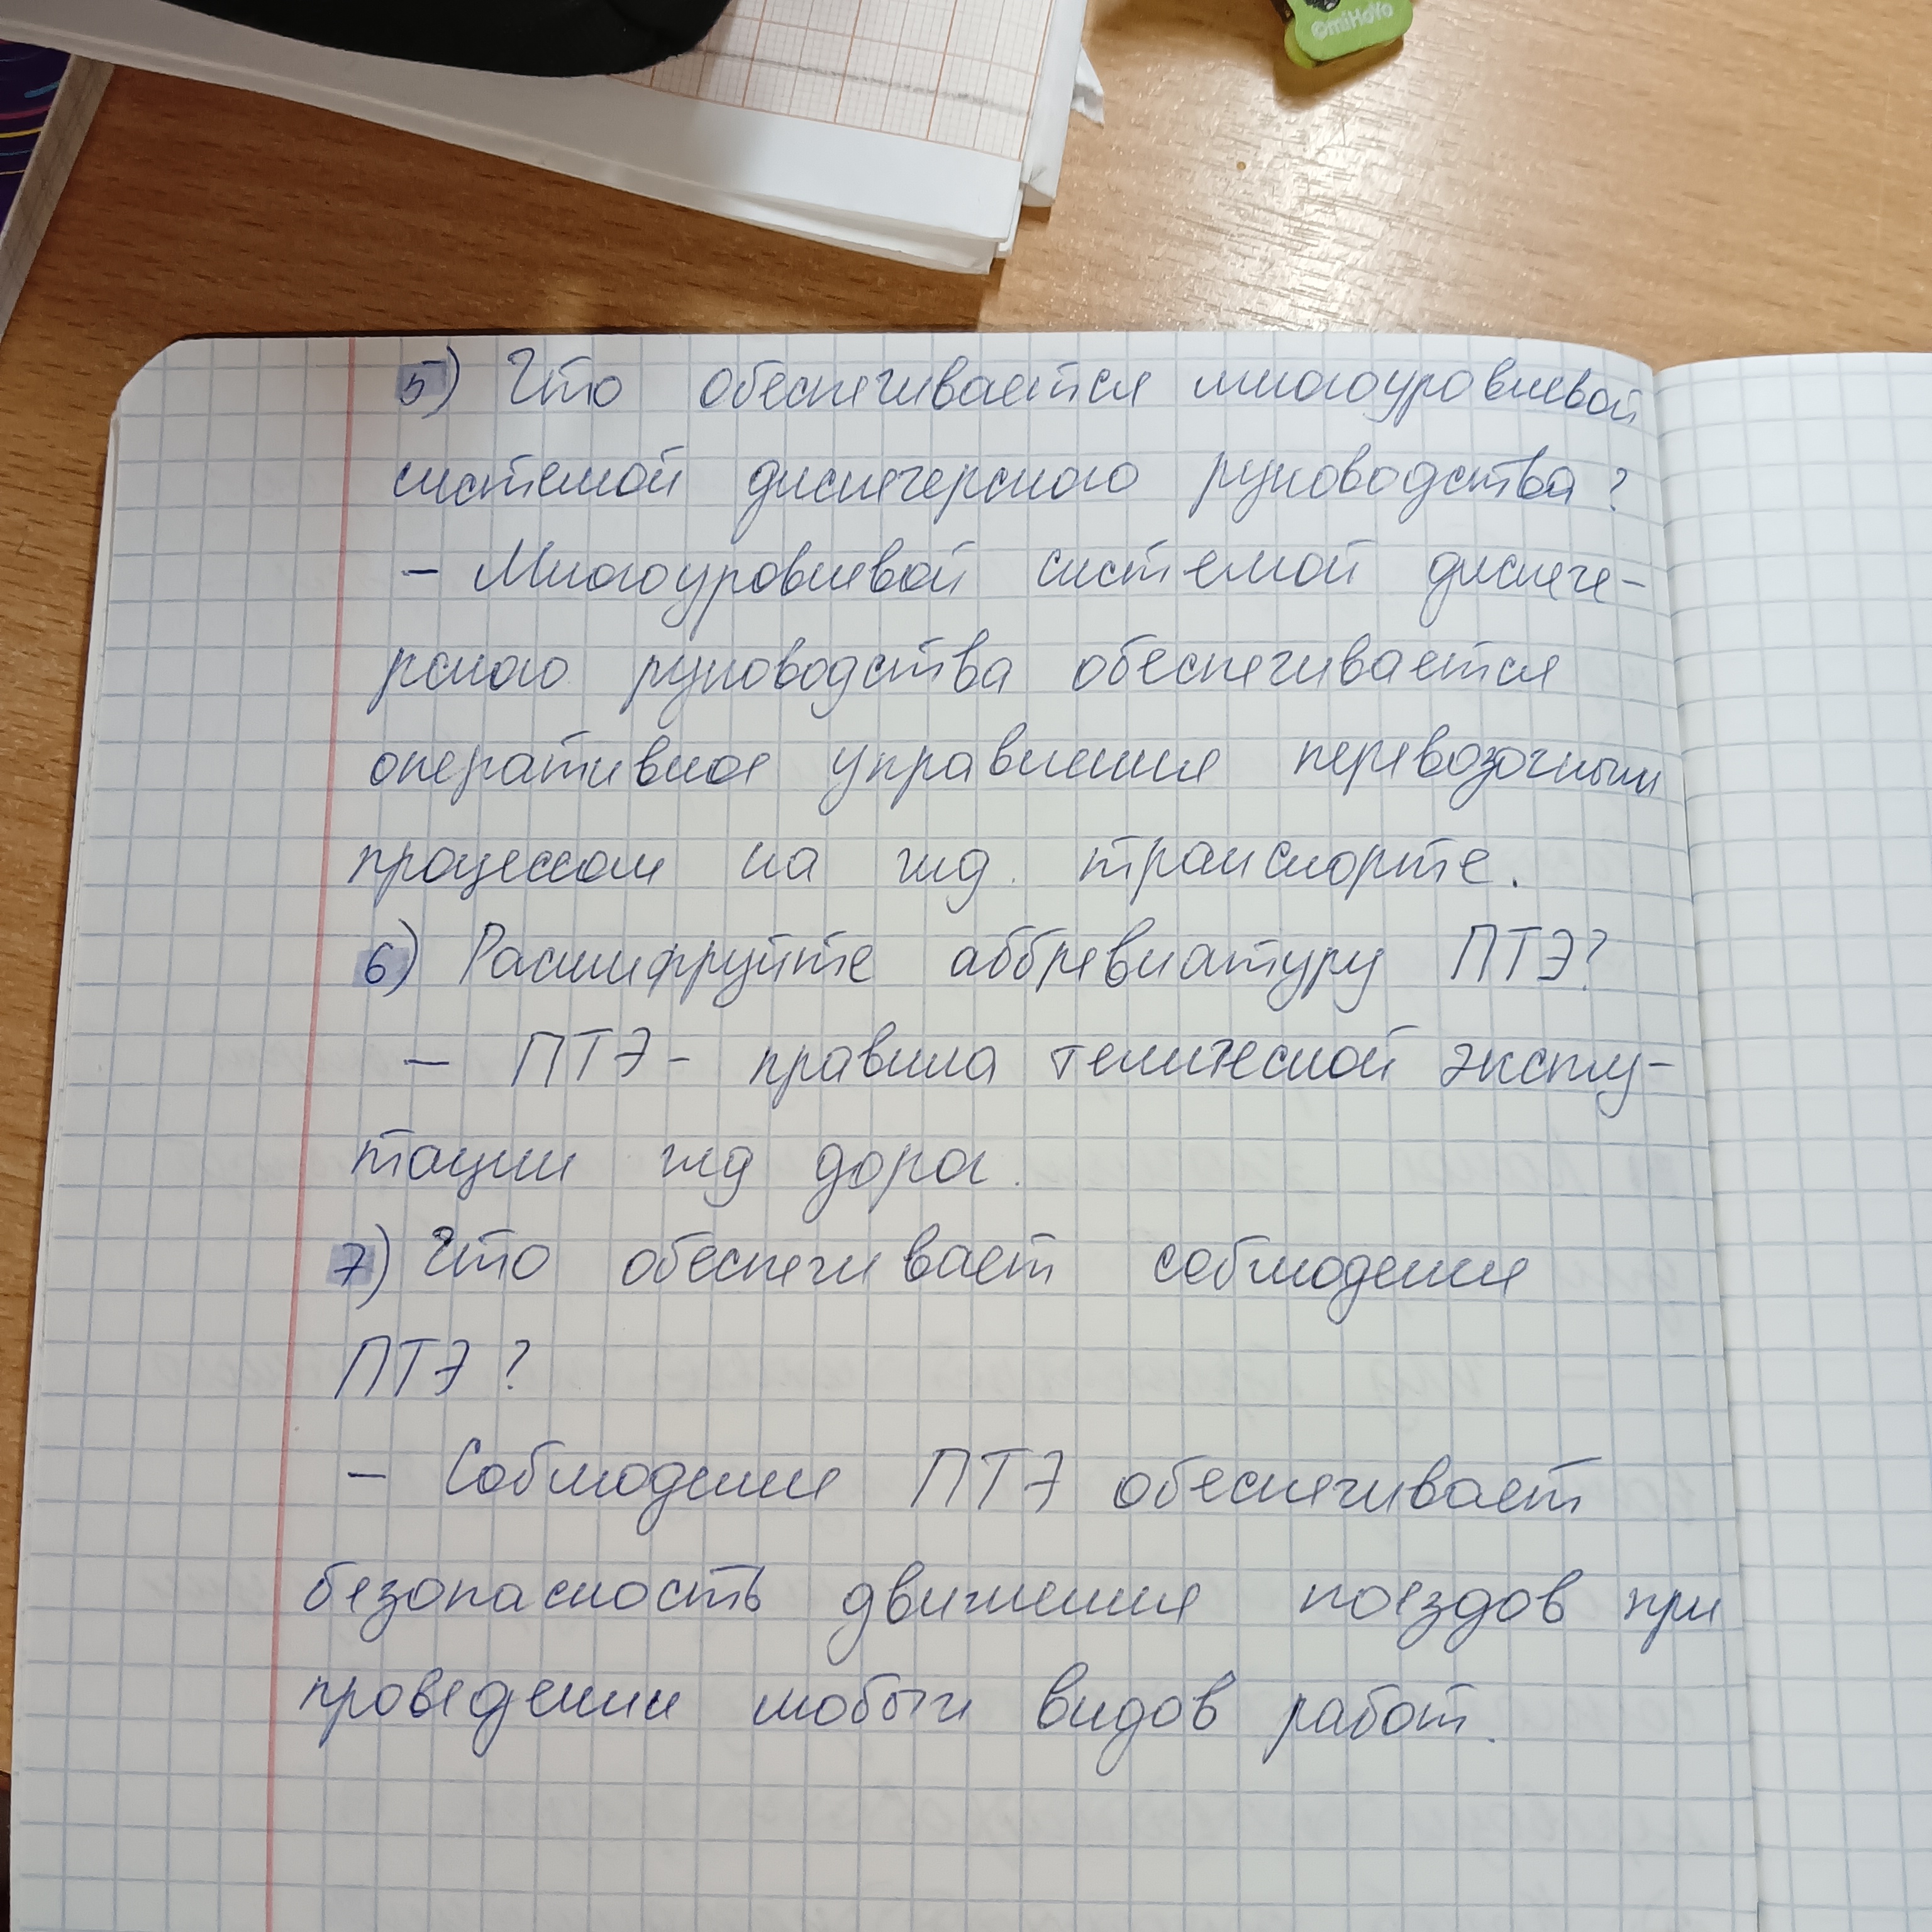 ©miHoYo
5) Что обеспечивается многоуровневой
системой диспечерского руководства?
- Многоуровневой системой диспече-
рского руководства обеспечивается
оперативное управление перевозочным
процессом на жд. транспорте.
6) Расшифруйте аббревиатуру ПТЭ?
- ПТЭ - правила технической эксплу-
тации жд дорог.
7) Что обеспечивает соблюдение
ПТЭ?
- Соблюдение ПТЭ обеспечивает
безопасность движения поездов при
проведении любых видов работ.